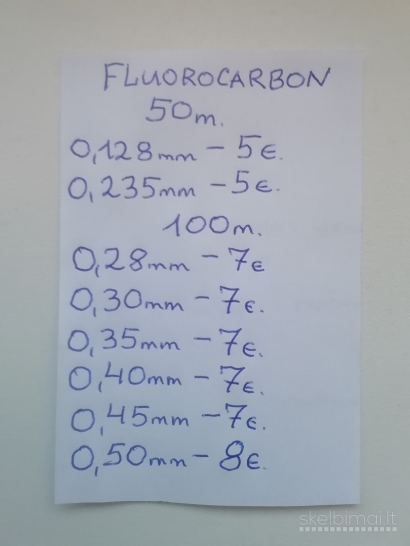 FLUOROCARBON
50m.
0,128mm – 5€.
0,235mm – 5€.
100m.
0,28mm – 7€
0,30mm – 7€.
0,35mm – 7€.
0,40mm – 7€.
0,45mm – 7€.
0,50mm – 8€.
skelbimai.lt